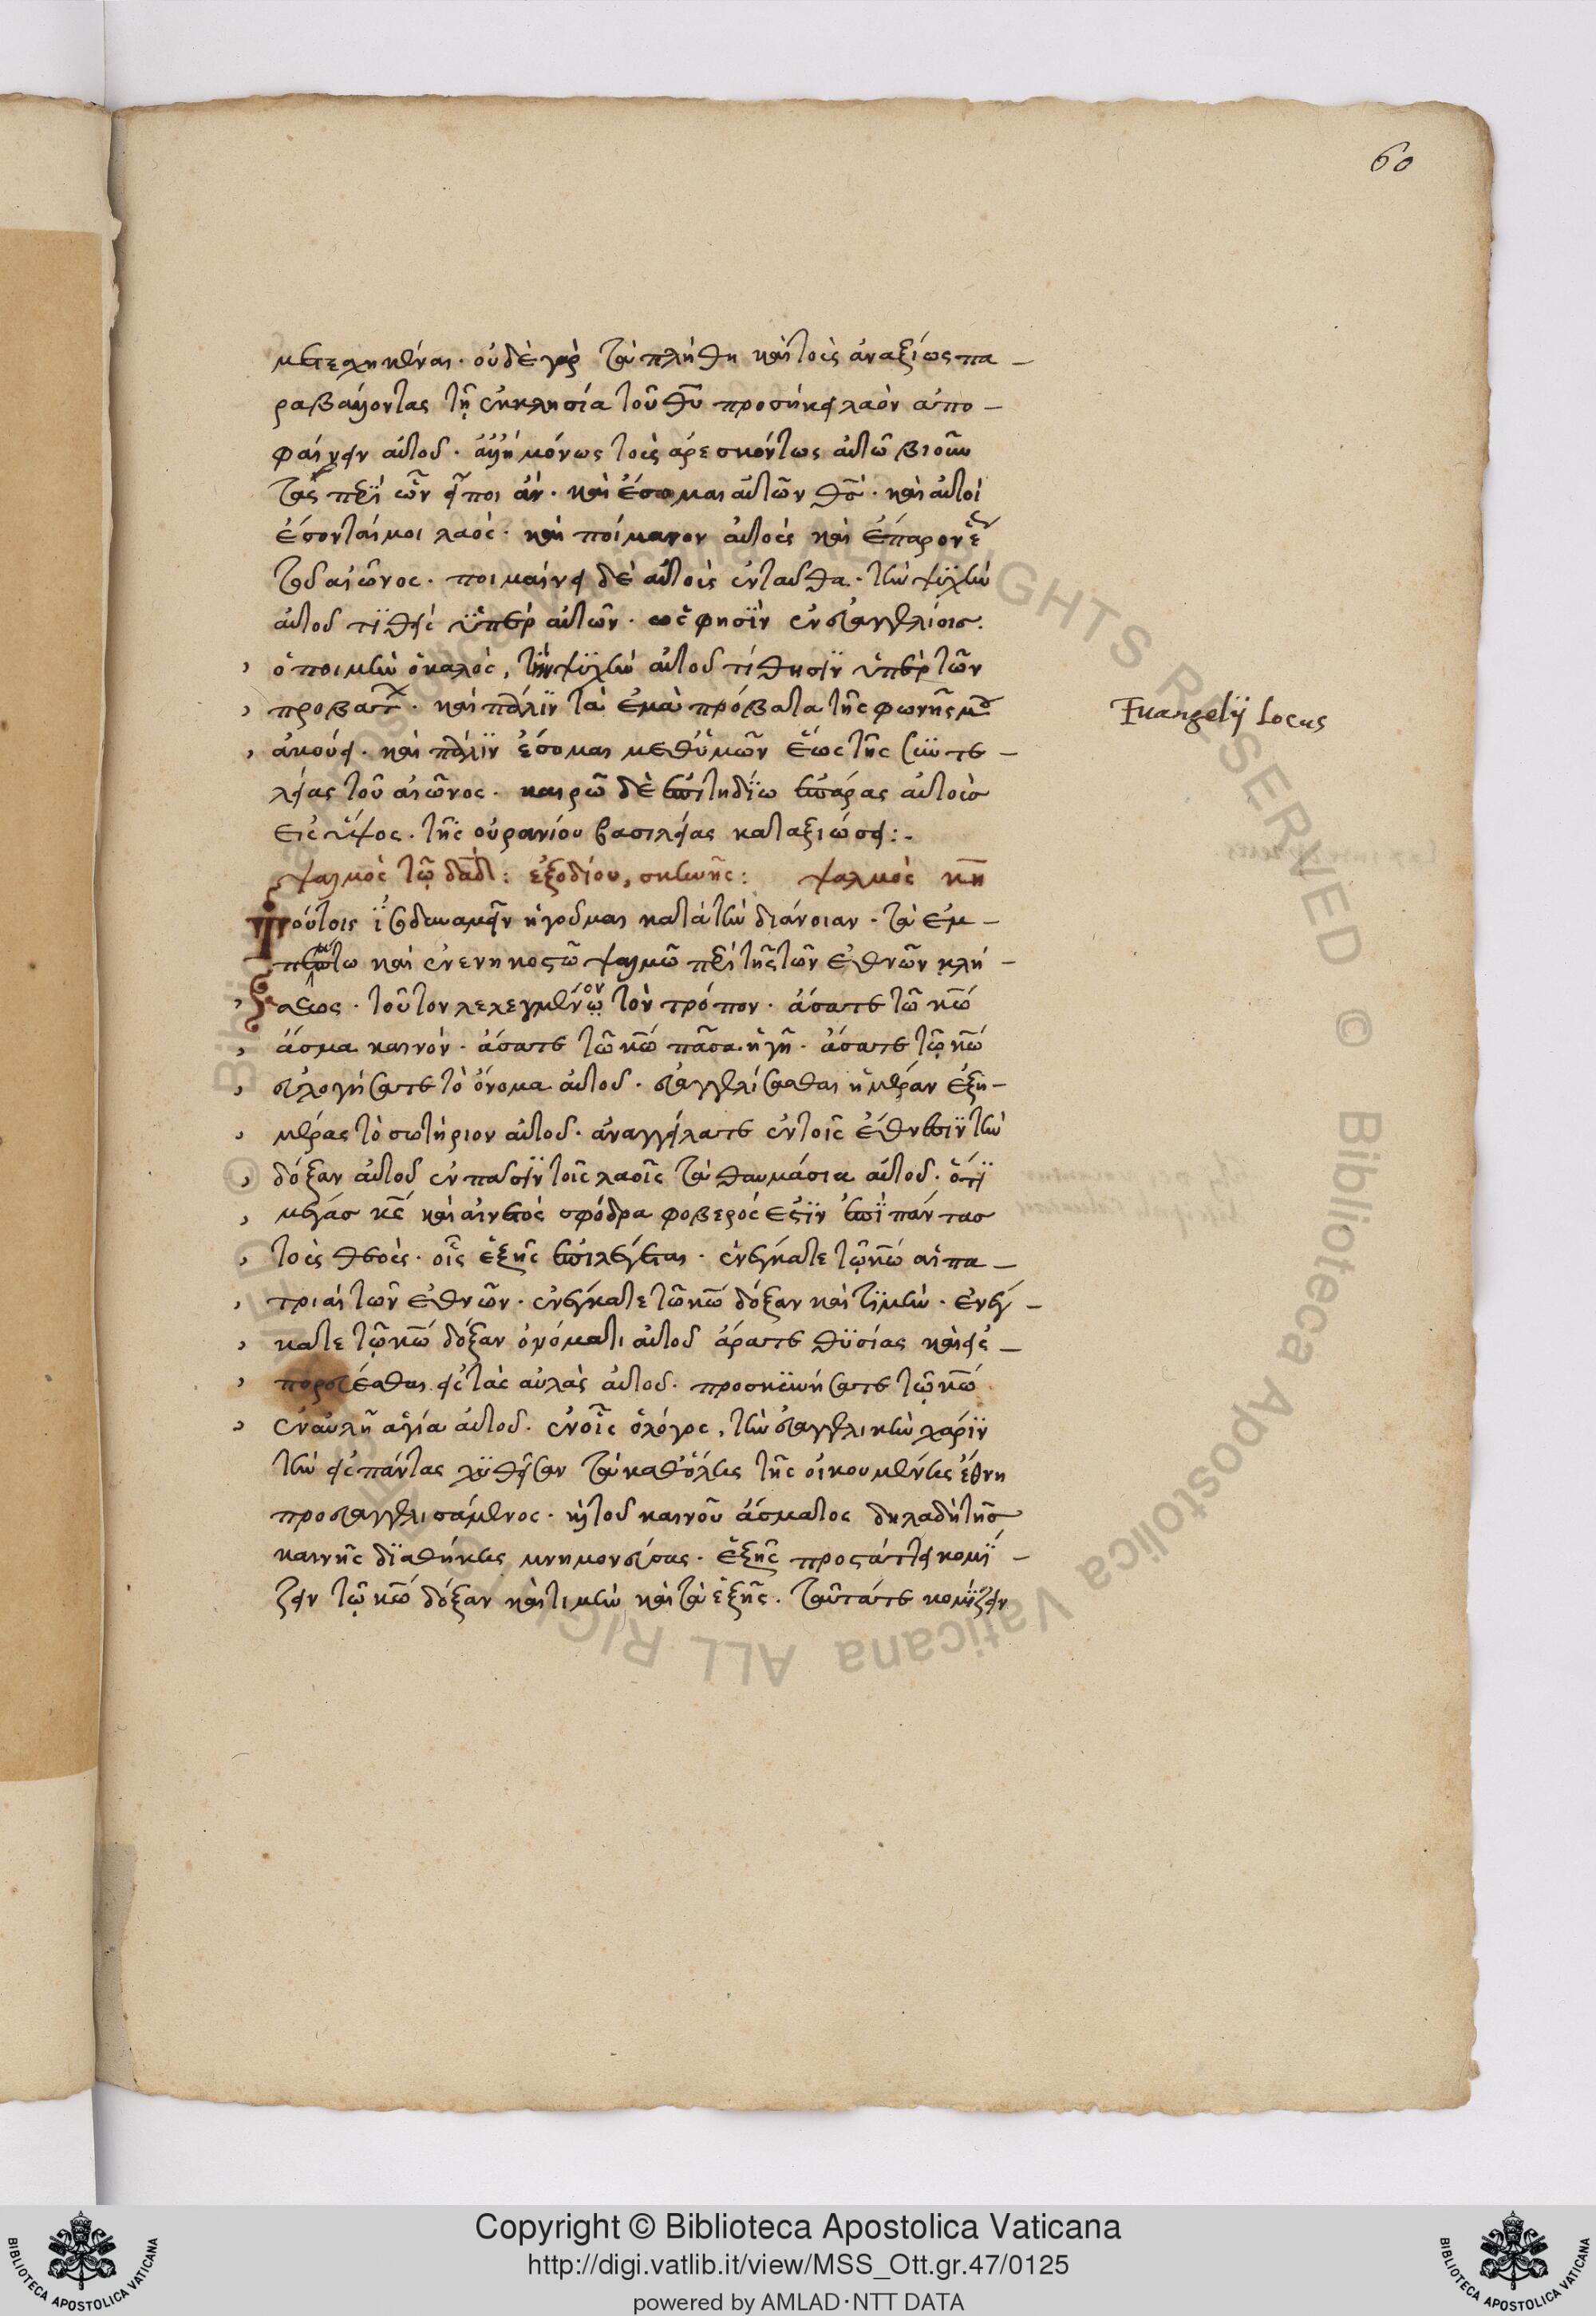 60
μετεσχηκέναι. οὐδὲ γὰρ τὰ πλήθη καὶ τοὺς ἀναξίως πα-
ραβάλλοντας τῇ ἐκκλησία τοῦ θυ προσήκει λαὸν ἀπο-
φαίνειν αὐτοῦ. ἀλλ' ἢ μόνως τοὺς ἀρεσκόντως αὐτῶ βιοῦν
τας περὶ ὧν εἴποι ἄν. καὶ ἔσομαι αὐτῶν θς. καὶ αὐτοὶ
ἔσονταί μοι λαός. καὶ ποίμανον αὐτοὺς καὶ ἔπαρον ἕως
τοῦ αἰῶνος. ποιμαίνει δὲ αὐτοὺς ἐνταῦθα. τὴν ψϋχὴν
αὐτοῦ τϊθεὶς ϋπὲρ αὐτῶν. ὥς φησϊν ἐν εὐαγγελίοις.
ὁ ποιμὴν ὁ καλὸς, τὴν ψϋχὴν αὐτοῦ τίθησϊν ὑπὲρ τῶν
προβατων. καὶ πάλϊν τὰ ἐμὰ πρόβατα τῆς φωνῆς μου
ἀκούει. καὶ πάλϊν ἔσομαι μεθ' ὑμῶν ἕως τῆς συντε-
λείας τοῦ αἰῶνος. καιρῶ δὲ ἐπιτηδίω ἐπάρας αὐτοὺς
εἰς ὕψος. τῆς οὐρανίου βασιλείας καταξιώσει:.
ψαλμὸς τῷ δαδ: ἐξοδίου, σκηνῆς: ψαλμὸς κη
Τούτοις ἰσοδυναμεῖν ἡγοῦμαι κατὰ τὴν διάνοιαν. τὰ ἐμ-
πέμπτω καὶ ἐνενηκοστῶ ψαλμῶ περὶ τῆς τῶν ἐθνῶν κλή-
σεως. τοῦτον λελεγμένον τὸν τρόπον. ἄσατε τῶ κω
ἄσμα καινόν. ἄσατε τῶ κω πᾶσα ἡ γῆ. ἄσατε τῷ κω
εὐλογήσατε τὸ ὄνομα αὐτοῦ. εὐαγγελίσασθαι ἡμέραν ἐξη-
μέρας τὸ σωτήριον αὐτοῦ. ἀναγγείλατε ἐν τοῖς ἔθνεσϊν τὴν
δόξαν αὐτοῦ ἐν πᾶσϊν τοῖς λαοῖς τὰ θαυμάσια αὐτοῦ. ὅτϊ
μέγας κς καὶ αἰνετὸς σφόδρα φοβερός ἐστϊν ἐπϊ πάντας
τοὺς θεούς. οἷς ἑξῆς ἐπιλέγεται. ἐνέγκατε τῷ κω αἱ πα-
τριαὶ τῶν ἐθνῶν. ἐνέγκατε τῶ κω δόξαν καὶ τϊμὴν. ἐνέγ-
κατε τῷ κω δόξαν ὀνόματι αὐτοῦ ἄρατε θϋσίας καὶ εἰσ-
πορεύεσθαι εἰς τὰς αὐλὰς αὐτοῦ. προσκϋνήσατε τῷ κω
ἐν αὐλῇ ἁγία αὐτοῦ. ἐν οἷς ὁ λόγος, τὴν εὐαγγελικὴν χάρϊν
τὴν εἰς πάντας χϋθεῖσαν τὰ καθ' ὅλης τῆς οἰκουμένης ἔθνη
προευαγγελισάμενος. καὶ τοῦ καινοῦ ἄσματος δηλαδὴ τῆς
καινῆς δϊαθήκης μνημονεύσας. ἑξῆς προστάττει κομϊ-
ζειν τῷ κω δόξαν καὶ τιμὴν καὶ τὰ ἑξῆς. ταῦτά τε κομϊζειν
Euangelij Locus
Copyright © Biblioteca Apostolica Vaticana
http://digi.vatlib.it/view/MSS_Ott.gr.47/0125
powered by AMLAD·NTT DATA
BIBLIOTECA APOSTOLICA VATICANA
BIBLIOTECA APOSTOLICA VATICANA
© Biblioteca Apostolica Vaticana ALL RIGHTS RESERVED © Biblioteca Apostolica Vaticana ALL RIGHTS RESERVED